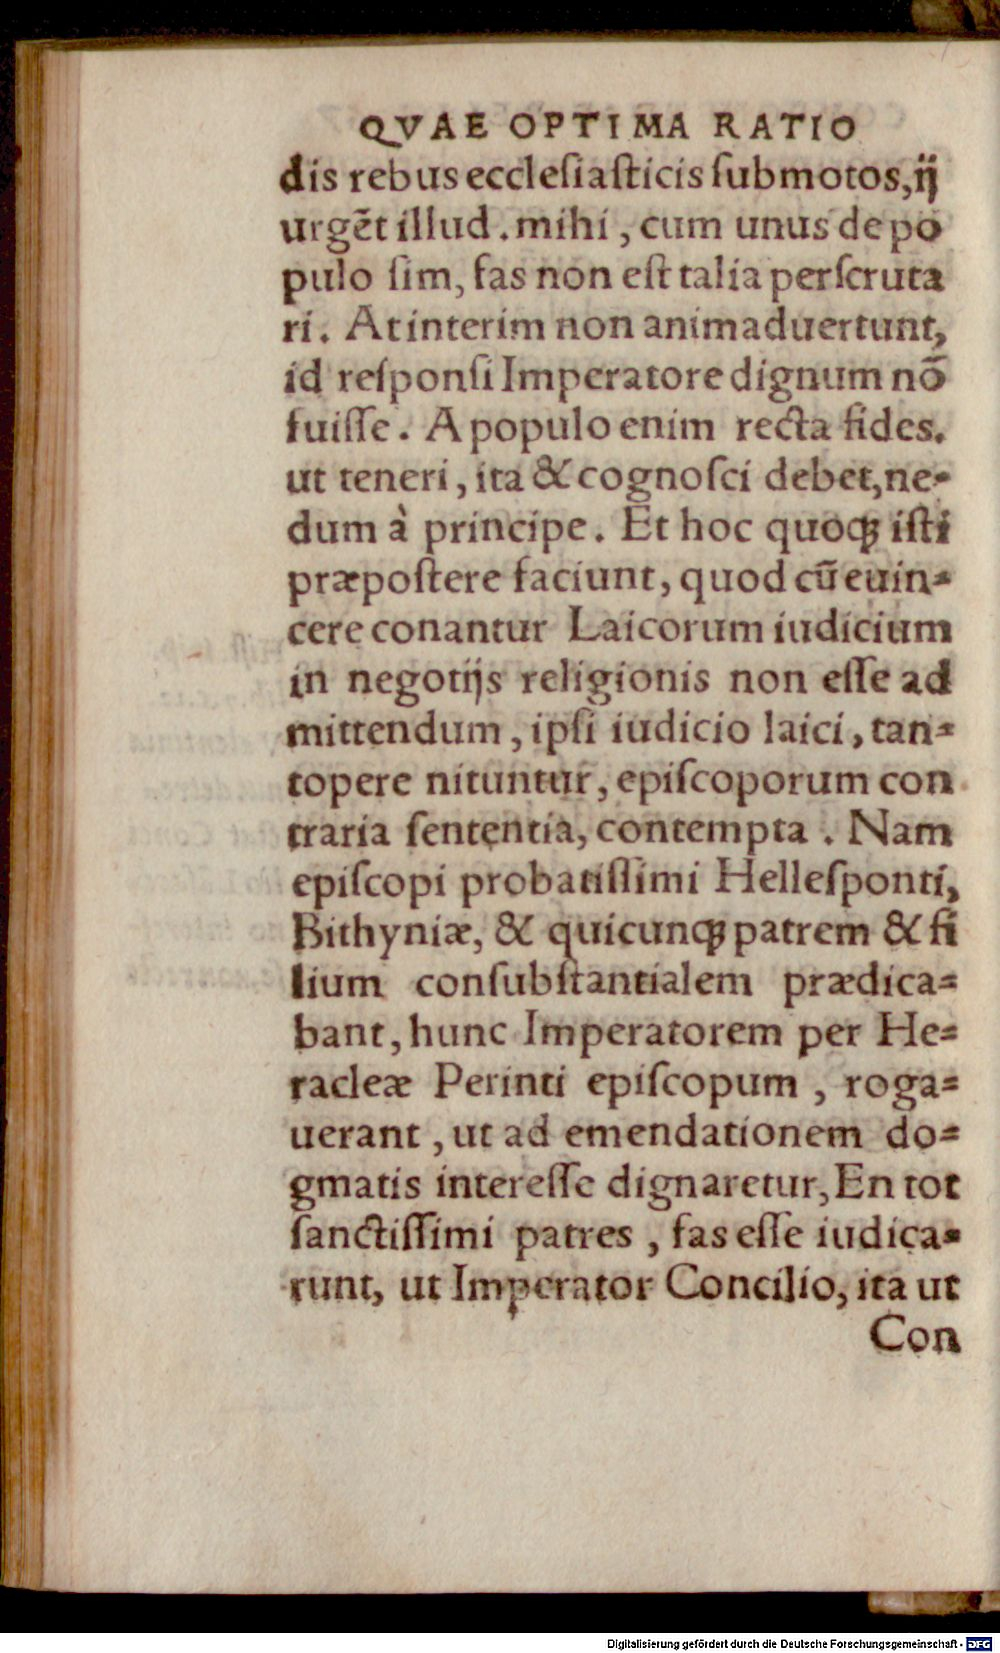 QVAE OPTIMA RATIO
dis rebus eccleſiaſticis ſubmotos, ij
urgēt illud. mihi, cum unus de po
pulo ſim, fas non eſt talia perſcruta
ri. At interim non animaduertunt,
id reſponſi Imperatore dignum nō
fuiſſe. A populo enim recta fides.
ut teneri, ita & cognoſci debet, ne-
dum à principe. Et hoc quoqꝫ iſti
præpoſtere faciunt, quod cū euin-
cere conantur Laicorum iudicium
in negotijs religionis non eſſe ad
mittendum, ipſi iudicio laici, tan-
topere nituntur, epiſcoporum con
traria ſententia, contempta. Nam
epiſcopi probatiſſimi Helleſponti,
Bithyniæ, & quicunqꝫ patrem & fi
lium conſubſtantialem prædica-
bant, hunc Imperatorem per He-
racleæ Perinti epiſcopum, roga-
uerant, ut ad emendationem do-
gmatis intereſſe dignaretur, En tot
ſanctiſſimi patres, fas eſſe iudica-
runt, ut Imperator Concilio, ita ut
Con
Digitalisierung gefördert durch die Deutsche Forschungsgemeinschaft - DFG